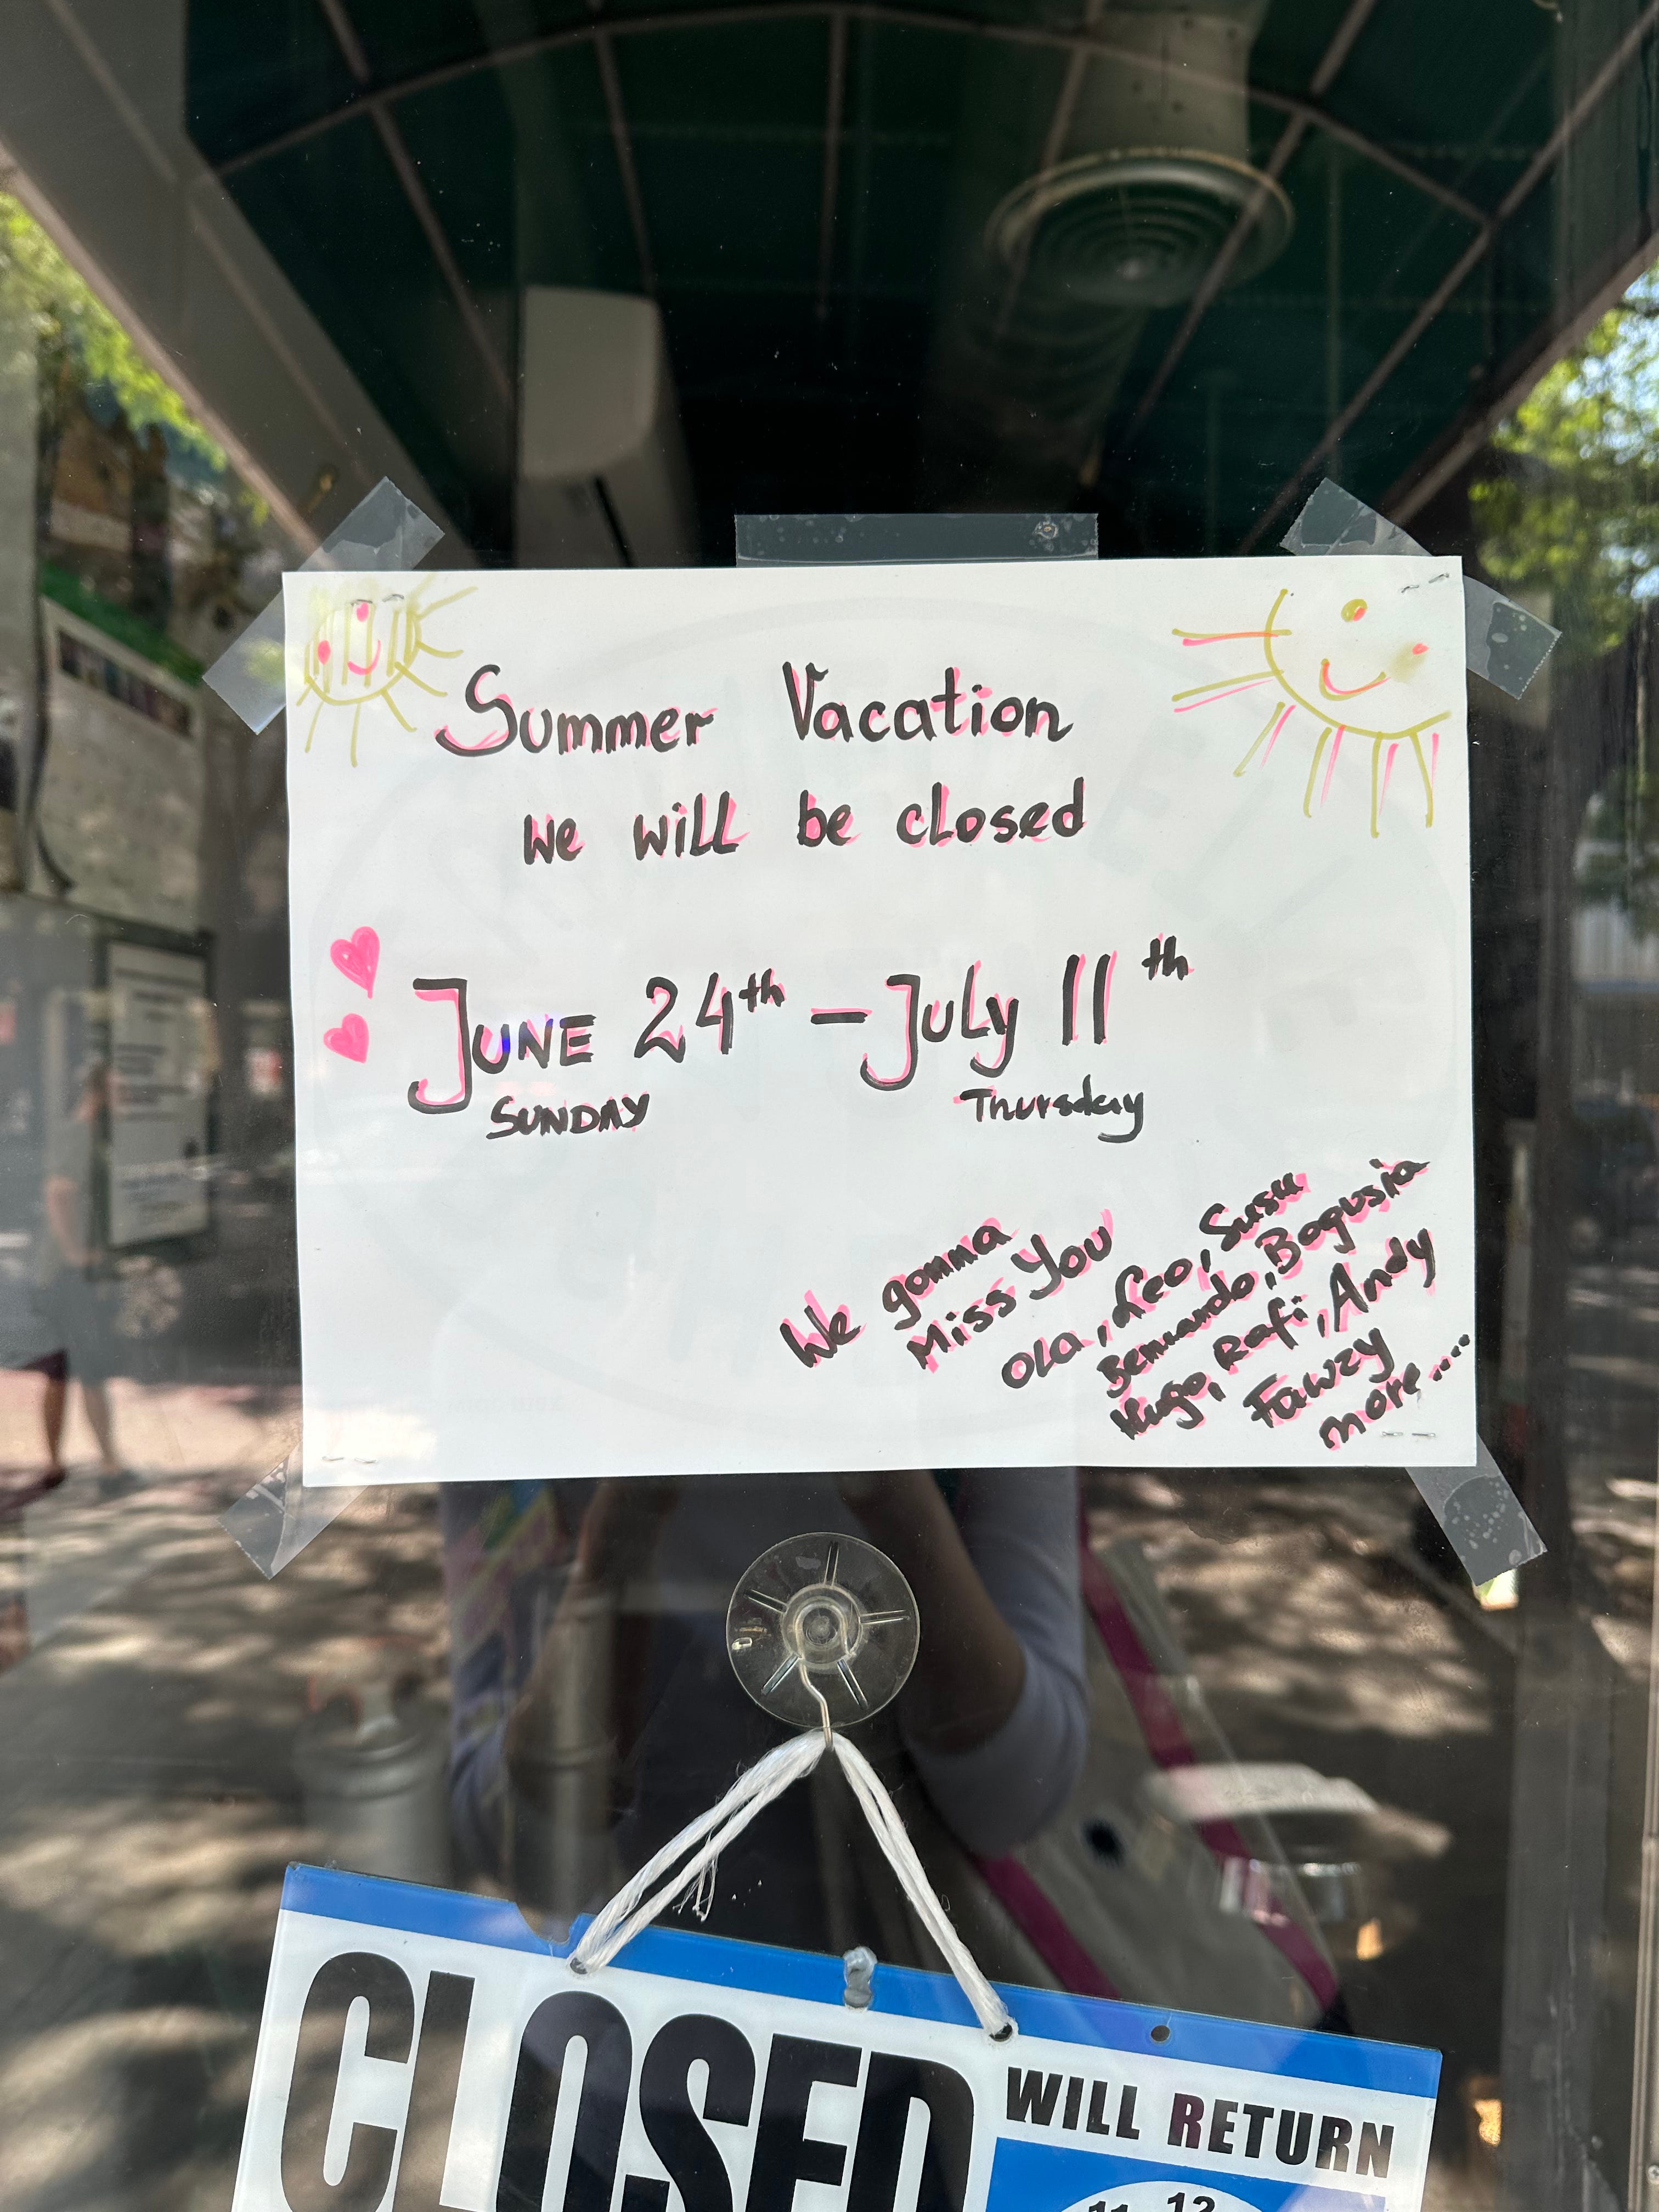 Summer Vacation
We will be closed
JUNE 24th – July 11th
SUNDAY Thursday
We gonna
Miss You
Ola, Leo, Susu
Bernardo, Bogusia
Hugo, Rafi, Andy
Fawzy
more.....
CLOSED
WILL RETURN
11 12